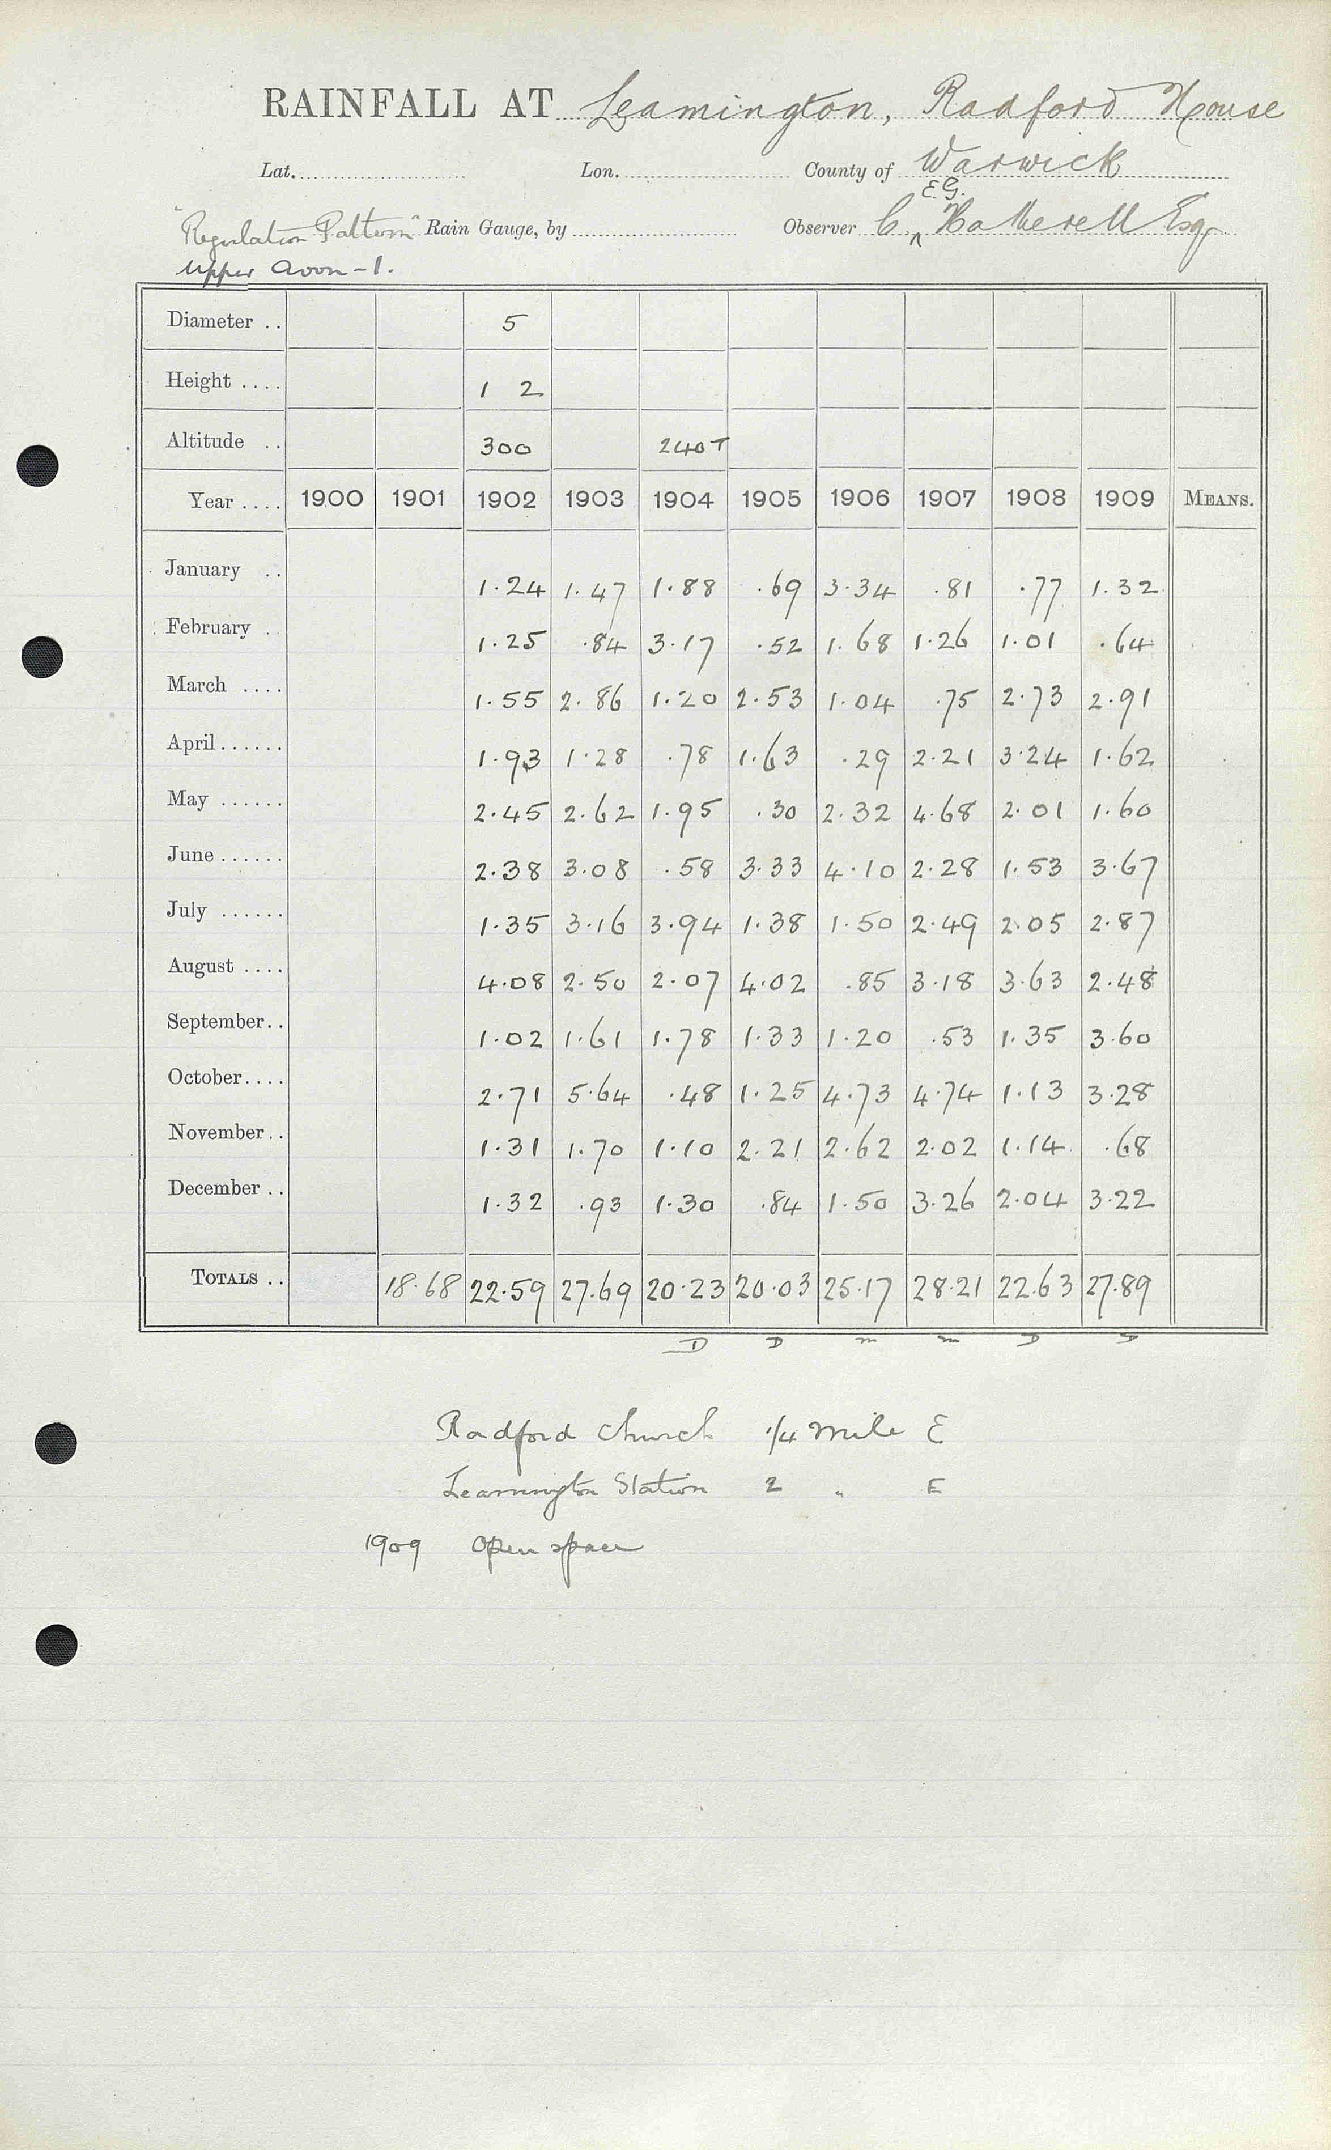 RAINFALL AT Leamington, Radford House
Lat. Lon. County of Warwick
E.G.
"Regulation Pattern" Rain Gauge, by Observer C. ^ Hatherell Esq
Upper Avon - 1.
Diameter .. 5
Height .... 1 2
Altitude .. 300 240 T
Year .... 1900 1901 1902 1903 1904 1905 1906 1907 1908 1909 MEANS.
January .. 1.24 1.47 1.88 .69 3.34 .81 .77 1.32
February . 1.25 .84 3.17 .52 1.68 1.26 1.01 .64
March .... 1.55 2.86 1.20 2.53 1.04 .75 2.73 2.91
April...... 1.93 1.28 .78 1.63 .29 2.21 3.24 1.62
May ...... 2.45 2.62 1.95 .30 2.32 4.68 2.01 1.60
June...... 2.38 3.08 .58 3.33 4.10 2.28 1.53 3.67
July ...... 1.35 3.16 3.94 1.38 1.50 2.49 2.05 2.87
August .... 4.08 2.50 2.07 4.02 .85 3.18 3.63 2.48
September.. 1.02 1.61 1.78 1.33 1.20 .53 1.35 3.60
October.... 2.71 5.64 .48 1.25 4.73 4.74 1.13 3.28
November.. 1.31 1.70 1.10 2.21 2.62 2.02 1.14 .68
December .. 1.32 .93 1.30 .84 1.50 3.26 2.04 3.22
TOTALS .. 18.68 22.59 27.69 20.23 20.03 25.17 28.21 22.63 27.89
D D m m D D
Radford Church 1/4 mile E
Leamington Station 2 " E
1909 Open space